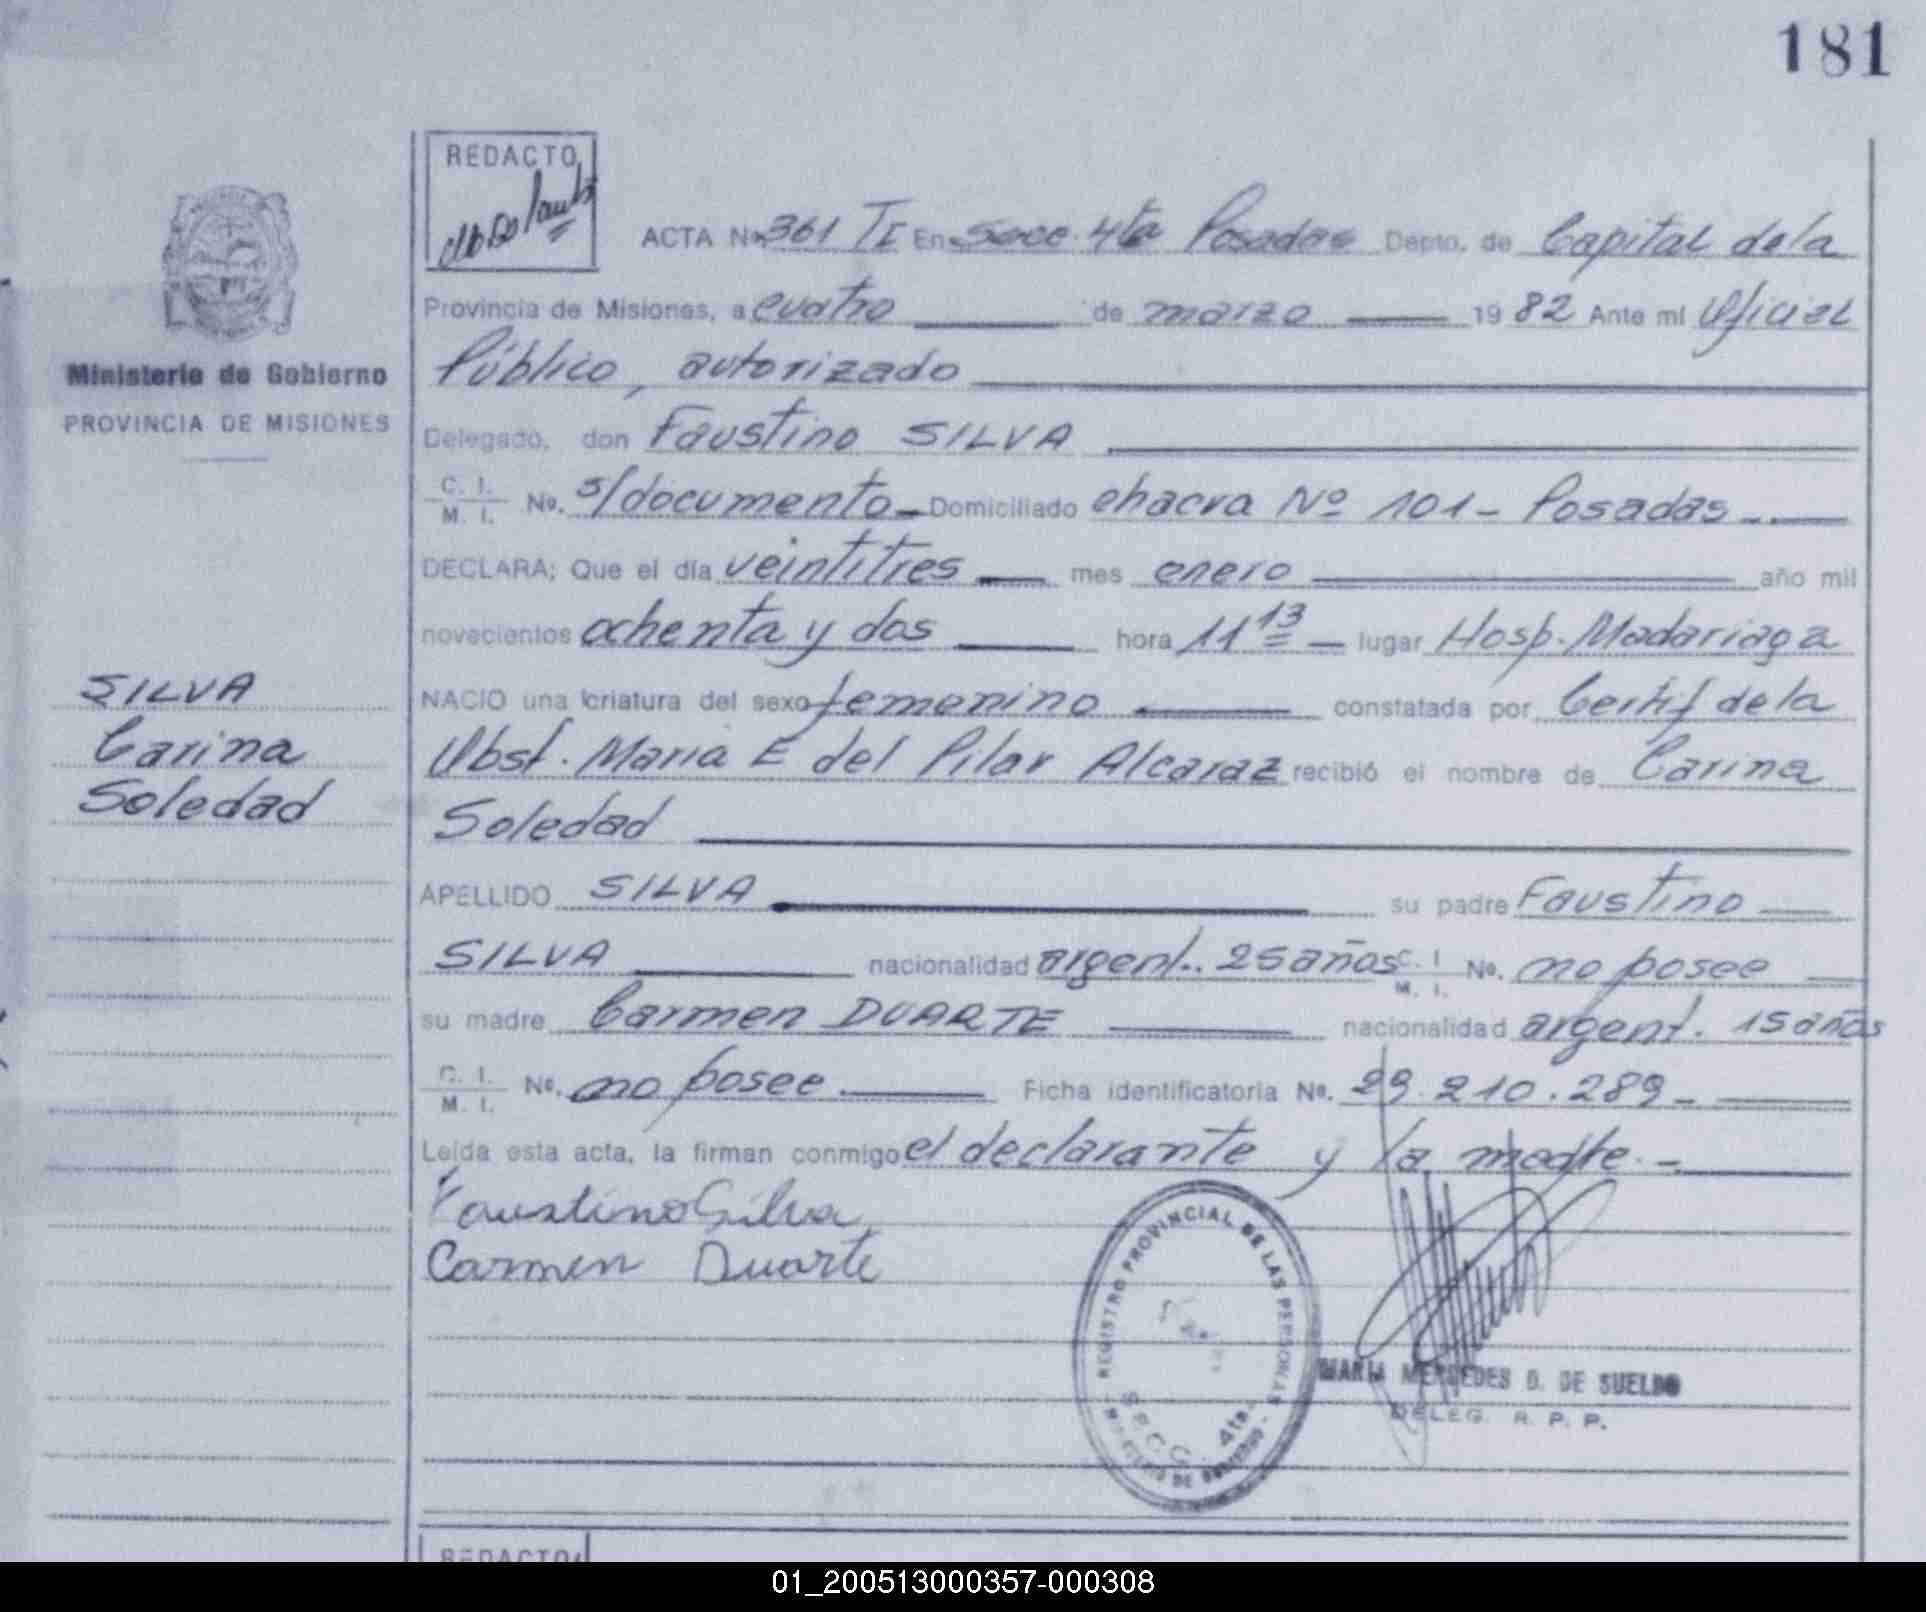 181
REDACTO
ACTA No. 361 TI En Secc. 4ta Posadas Depto. de Capital de la
Provincia de Misiones, a cuatro de marzo 1982 Ante mi Oficial
Público, autorizado
Ministerio de Gobierno
PROVINCIA DE MISIONES
Delegado, don Faustino SILVA
C. I. M. I. No. s/documento - Domiciliado chacra Nº 101 - Posadas -
DECLARA; Que el día veintitres mes enero año mil
novecientos ochenta y dos hora 11 13 lugar Hosp. Madariaga
SILVA
Carina
Soledad
NACIO una criatura del sexo femenino constatada por Certif de la
Obst. Maria E del Pilar Alcaraz recibió el nombre de Carina
Soledad
APELLIDO SILVA su padre Faustino
SILVA nacionalidad argent. 25 años C. I. M. I. No. no posee
su madre Carmen DUARTE nacionalidad argent. 15 años
C. I. M. I. No. no posee Ficha identificatoria No. 29.210.289 -
Leida esta acta, la firman conmigo el declarante y la madre. -
Faustino Silva
Carmen Duarte
REGISTRO PROVINCIAL DE LAS PERSONAS
SECC. 4ta.
MARIA MERCEDES D. DE SUELDO
DELEG. R. P. P.
REDACTO
01_200513000357-000308